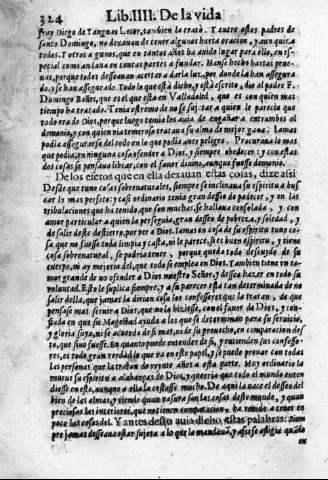 324 Lib.IIII. De la vida
fray Diego de Yanguas Letor, tambien la trató. Y entre estos padres de
santo Domingo, no dexauan de tener algunos harta oracion, y aun quiza
todos. Y otros algunos, que en tantos años ha auido lugar para ello, en es-
pecial como andaua en tantas partes a fundar. Hanse hecho hartas prue-
uas, porque todos desseauan acertar a darla luz, por donde la han assegura
do, y se han assegurado. Todo lo que està dicho, està escrito, dio al padre F.
Domingo Bañes, que es el que està en Valladolid, que es con quien mas
tiempo ha tratado. Tenia estremo de no se sujetar a quien le parecia que
todo era de Dios, porque luego temia los auia de engañar a entrambos el
demonio, y con quien via temeroso trataua su alma de mejor gana. Iamas
podia assegurarse del todo en lo que podia auer peligro. Procuraua lo mas
que podia, en ninguna cosa ofender a Dios, y siempre obedecer: y con estas
dos cosas se pensaua librar, con el fauor diuino, aunque fuesse demonio.
De los efetos que en ella dexauan estas cosas, dize assi
Desde que tuuo cosas sobrenaturales, siempre se inclinaua su espiritu a bus
car lo mas perfeto: y casi ordinario tenia gran desseo de padecer, y en las
tribulaciones que ha tenido, que son muchas, se hallaua consolada, y con
amor particular a quien la perseguia, gran desseo de pobreza, y soledad, y
de salir deste destierro, por ver a Dios. Iamas en cosa de su espiritu tuuo co
sa que no fuesse toda limpia y casta, ni le parece, si es buen espiritu, y tiene
cosa sobrenatural, se podria tener, porque queda todo descuydo de su
cuerpo, ni ay memoria del, que todo se emplea en Dios. Tambien tiene te-
mor grande de no ofender a Dios nuestro Señor, y dessea hazer en todo su
voluntad. Esto le suplica siempre, y a su parecer està tan determinada de no
salir della, que jamas le dirian cosa los confessores que la tratan, de que
pensasse mas seruir a Dios, que no la hiziesse, con el fauor de Dios, y con
fiada en que su Magestad ayuda a los que se determinan para su seruicio,
y gloria suya, ni se acuerda de si mas, ni de su prouecho, en comparacion des
to, que sino fuesse. En quanto puede entender de si, y entienden sus confesso-
res, es todo gran verdad lo que va en este papel, y se puede prouar con todas
las personas que la tratan de veynte años a esta parte. Muy ordinario la
mueue su espiritu a alabanças de Dios, y querria que todo el mundo enten
diesse en esto, aunque a ella la costasse mucho. De aqui la nace el desseo del
bien de las almas, y viendo quan vasura son las cosas deste mundo, y quan
preciosas las interiores, que no tienen comparacion, ha venido a tener en
poco las cosas del. Y antes desto auia dicho estas palabras: siem
pre jamas desseaua estar sujeta a lo que la mandauan, y assi se afligia quãdo
en